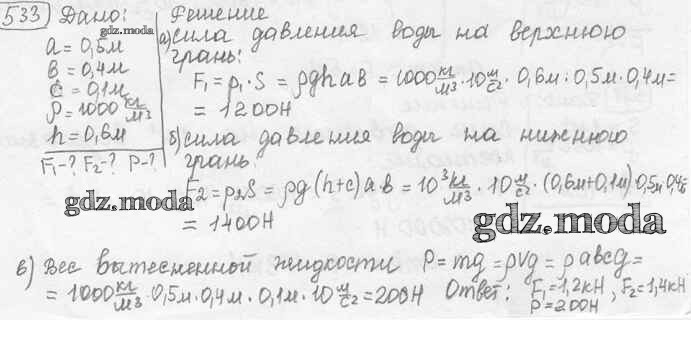 533 Дано:
gdz.moda
a = 0,5м
в = 0,4м
c = 0,1м
ρ = 1000 кг/м³
h = 0,6м
F₁-? F₂-? P-?
Решение
а) сила давления воды на верхнюю
грань:
F₁ = p₁·S = ρghав = 1000 кг/м³ · 10 м/с² · 0,6м · 0,5м · 0,4м =
= 1200Н
б) сила давления воды на нижнюю
грань:
F₂ = p₂S = ρg(h+c)ав = 10³ кг/м³ · 10 м/с² · (0,6м+0,1м) 0,5м 0,4м =
gdz.moda
= 1400Н
gdz.moda
в) Вес вытесненной жидкости P = mg = ρVg = ρавcg =
= 1000 кг/м³ · 0,5м · 0,4м · 0,1м · 10 м/с² = 200Н Ответ: F₁=1,2кН, F₂=1,4кН
P=200Н